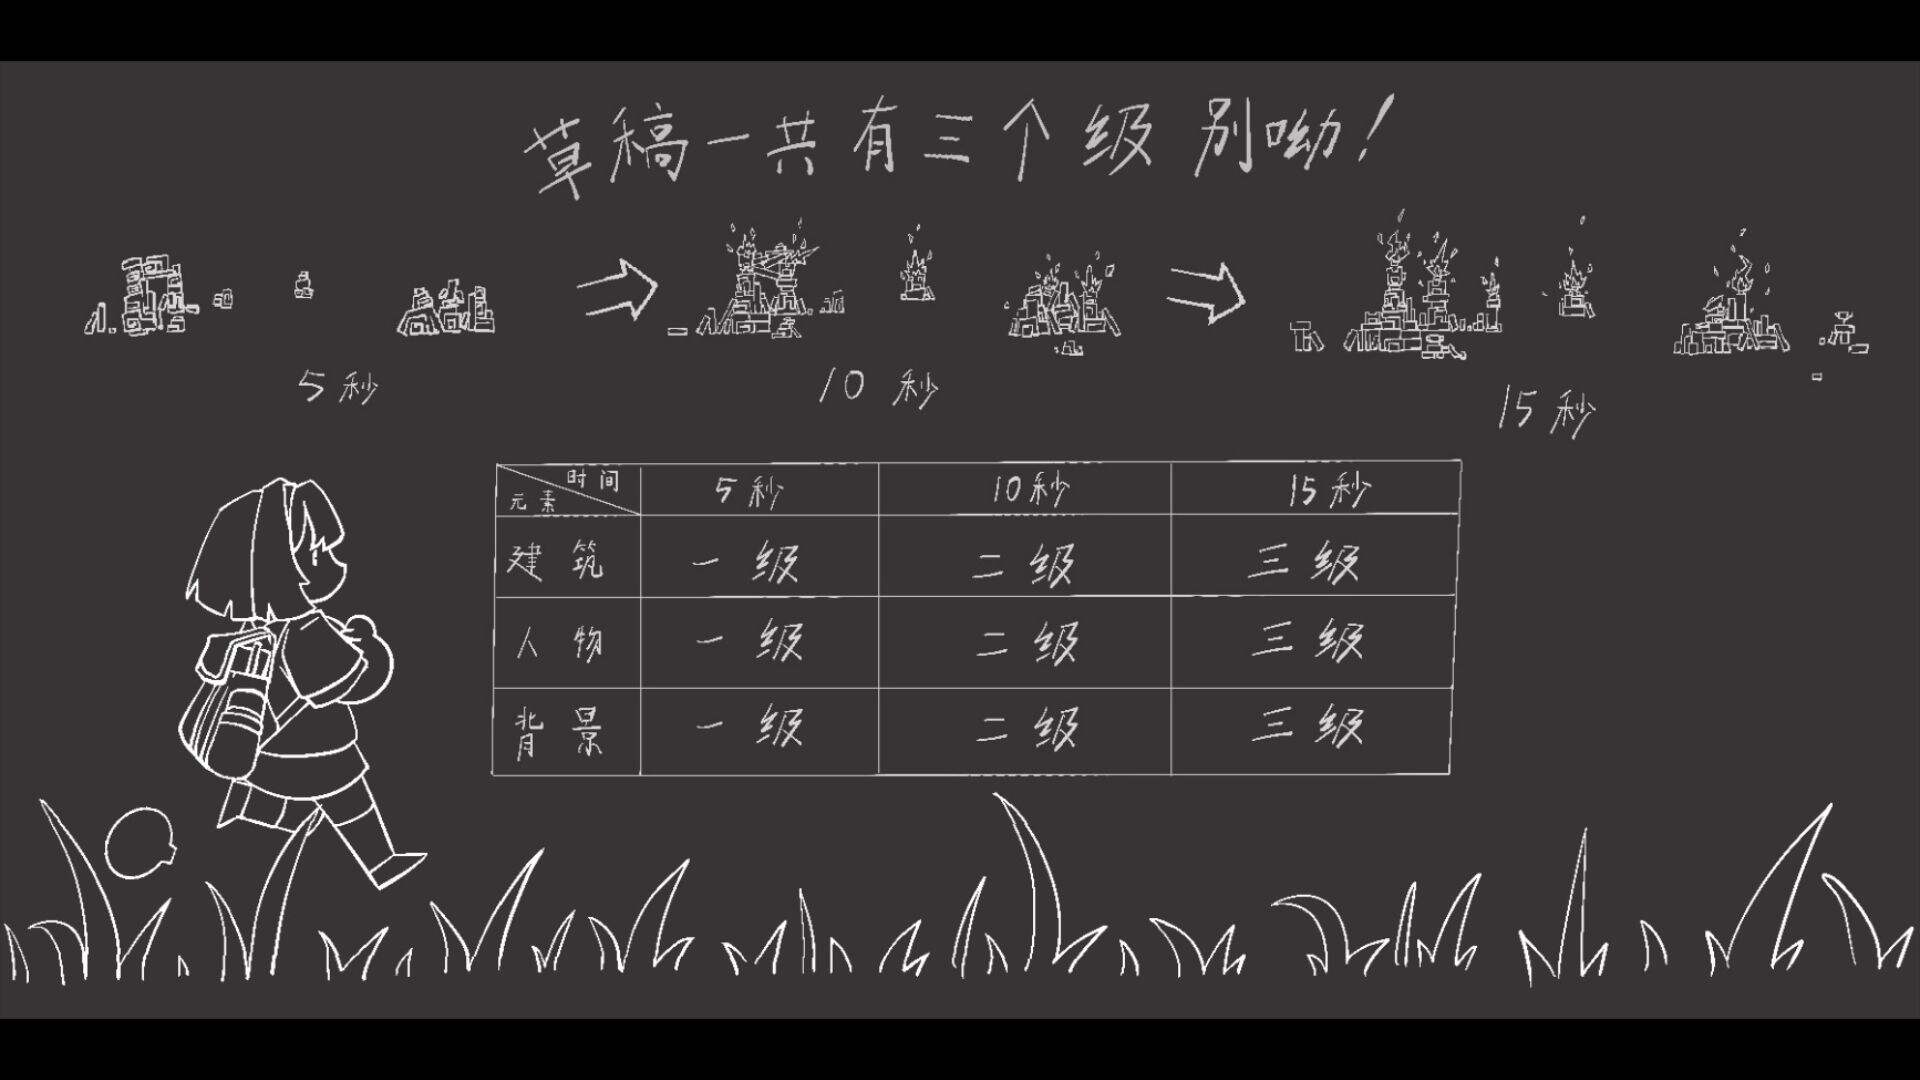 草稿一共有三个级别呦！
5秒
10秒
15秒
时间
元素
5秒 10秒 15秒
建筑 一级 二级 三级
人物 一级 二级 三级
背景 一级 二级 三级